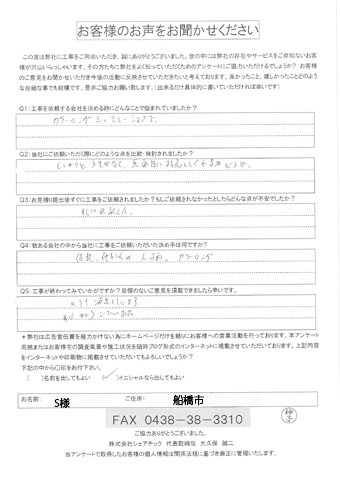 お客様のお声をお聞かせください
この度は弊社に工事をご用命いただき、誠にありがとうございました。世の中には弊社の存在やサービスをご存知ないお客
様が沢山いらっしゃいます。その方たちに弊社をよく知っていただくためのアンケートにご協力いただけるでしょうか？お客様
のご意見をお聞かせいただき今後の活動に反映させていただきたいと考えております。良かったこと、嬉しかったことどのよう
な些細な事でも結構です。是非ご協力お願い致します。（出来るだけ具体的に書いていただければ幸いです）
Q1：工事を依頼する会社を決める時にどんなことで悩まれていましたか？
カラーリングシミュレーション
Q2：当社にご依頼いただく際にどのような点を比較・検討されましたか？
Q3：お見積り提出後すぐに工事をご依頼されましたか？もしご依頼されなかったとしたらどんな点が不安でしたか？
Q4：数ある会社の中から当社に工事をご依頼いただいた決め手は何ですか？
人柄、カラーリング
Q5：工事が終わってみていかがですか？忌憚のないご意見を頂戴できましたら幸いです。
満足しています。
＊弊社は広告宣伝費を極力かけない為にホームページだけを頼りにお客様への営業活動を行っております。本アンケート
用紙またはお客様宅の調査風景や施工状況を随時ブログ形式のインターネットに掲載させていただいております。上記内容
をインターネットや印刷物に掲載させていただいてもよろしいでしょうか？
下記の中から〇印をお付下さい。
（　）名前を出してもよい　（✓）イニシャルなら出してもよい
お名前：　S様　ご住所：　船橋市
FAX 0438-38-3310
ご協力ありがとうございました。
株式会社シェアテック　代表取締役　大久保 誠二
当アンケートで取得したお客様の個人情報は関係法規に基づき厳正に管理いたします。